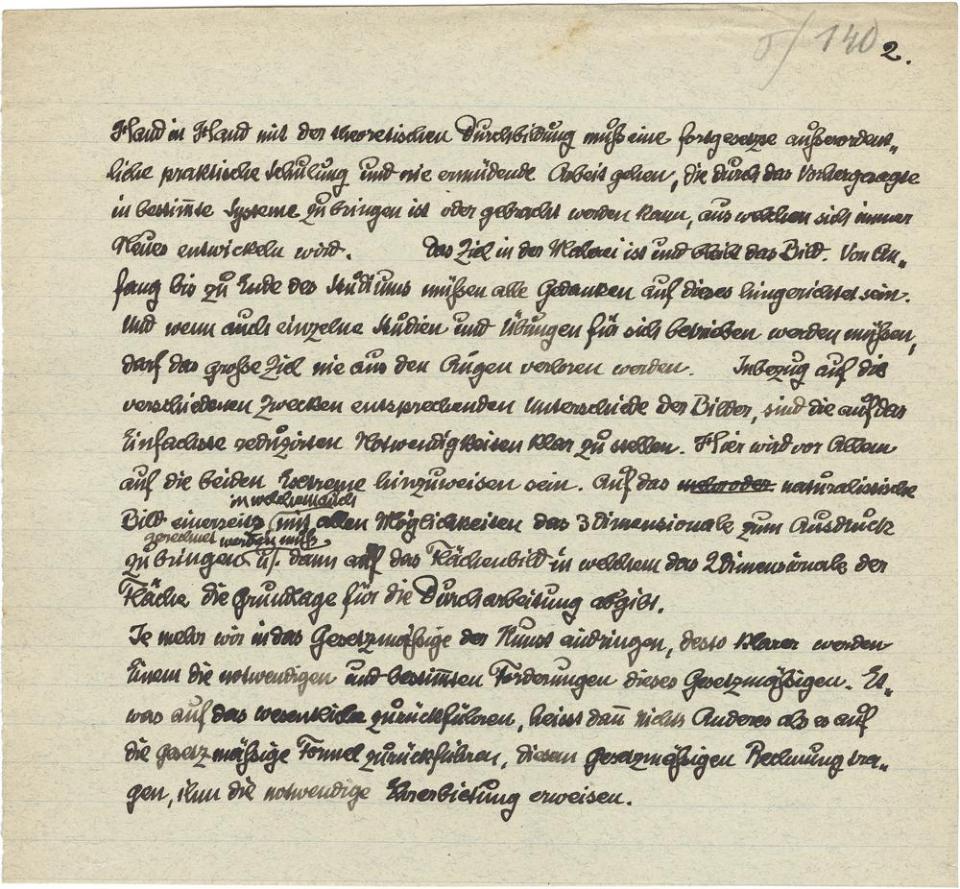 5/140 2.
Hand in Hand mit der theoretischen Durchbildung muß eine fortgesetze außerordent-
liche praktische Schulung und nie ermüdende Arbeit gehen, die durch das Vorhergesagte
in bestim̅te Systeme zu bringen ist oder gebracht werden kann, aus welchen sich immer
Neues entwickeln wird. Das Ziel in der Malerei ist und bleibt das Bild. Von An-
fang bis zu Ende des Studiums müßen alle Gedanken auf dieses hingerichtet sein.
Und wenn auch einzelne Studien und Übungen für sich betrieben werden müßen,
darf das große Ziel nie aus den Augen verloren werden. Inbezug auf die
verschiedenen Zwecken entsprechenden Unterschiede der Bilder, sind die auf das
Einfachste reduzirten Notwendigkeiten klar zu stellen. Hier wird vor Allem
auf die beiden Extreme hinzuweisen sein. Auf das naturalistische
in welchem auch
Bild einerseits mit allen Möglichkeiten das 3 Dimensionale zum Ausdruck
gerechnet werden muß
zu bringen u. dann auf das Flächenbild in welchem das 2 Dimensionale der
Fläche die Grundlage für die Durcharbeitung abgibt.
Je mehr wir in das Gesetzmäßige der Kunst eindringen, desto klarer werden
Einem die notwendigen und bestim̅ten Forderungen dieses Gesetzmäßigen. Et-
was auf das wesentliche zurückführen, heisst dan̅ nichts Anderes als es auf
die gesetzmäßige Formel zurückführen, diesem Gesetzmäßigen Rechnung tra-
gen, ihm die notwendige Ehrerbietung erweisen.